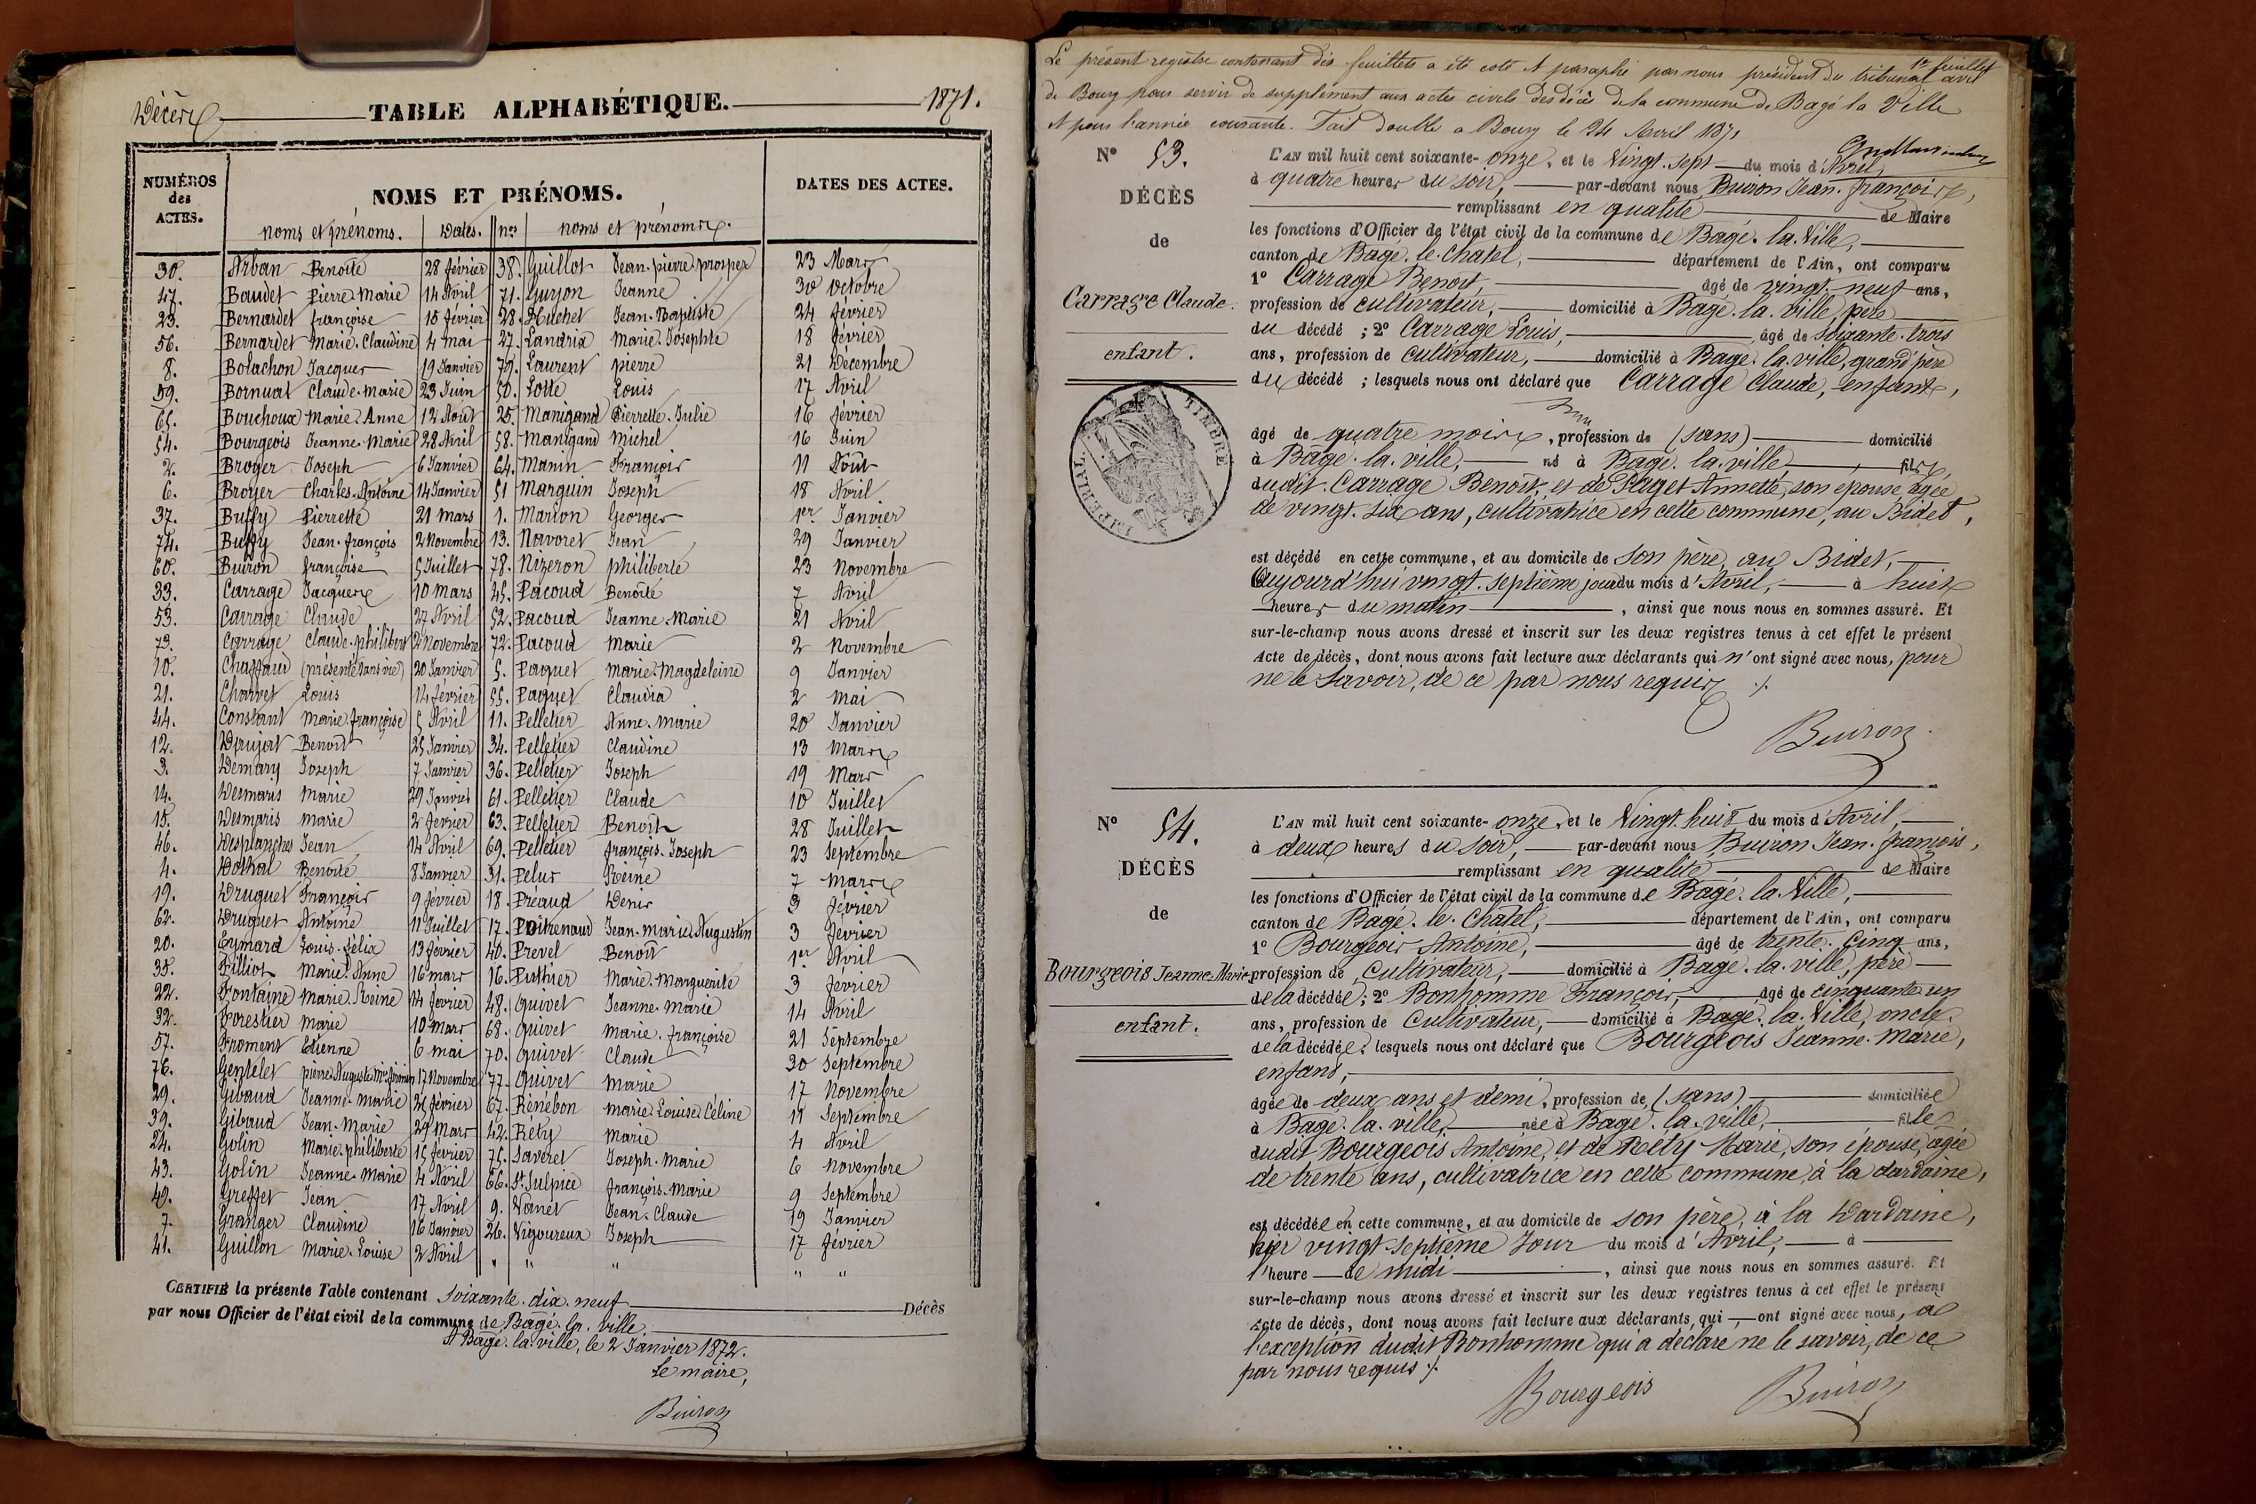 Décès TABLE ALPHABÉTIQUE. 1871.
NUMÉROS des ACTES. NOMS ET PRÉNOMS. DATES DES ACTES.
noms et prénoms. Dates. nos noms et prénoms.
30. Arban Benoite 28 février 38. Guillot Jean-pierre prosper 23 Mars
47. Baudet Pierre Marie 14 Avril 71. Guyon Jeanne 30 Octobre
23. Bernardet françoise 15 février 28. Huchet Jean-Baptiste 24 février
56. Bernardet Marie-Claudine 4 mai 27. Landrix Marie-Josephte 18 février
8. Bolachon Jacques 19 Janvier 79. Laurent pierre 21 Décembre
59. Bornuat Claude-Marie 23 Juin 50. Lotte Louis 17 Avril
65. Bouchoux Marie-Anne 12 Août 25. Manigand Pierrette-Julie 16 février
54. Bourgeois Jeanne-Marie 28 Avril 58. Manigand Michel 16 Juin
2. Broyer Joseph 6 Janvier 64. Manin François 11 Août
6. Broyer Charles-Antoine 14 Janvier 51 Marguin Joseph 18 Avril
37. Buffy Pierrette 21 mars 1. Marion Georges 1er Janvier
74. Buffy Jean-françois 2 Novembre 13. Navoret Jean 29 Janvier
60. Buiron françoise 5 Juillet 78. Nizeron philiberte 23 Novembre
33. Carrage Jacques 10 mars 45. Pacoud Benoite 7 Avril
53. Carrage Claude 27 Avril 52. Pacoud Jeanne-Marie 21 Avril
73. Carrage Claude-philibert 2 Novembre 72. Pacoud Marie 2 Novembre
10. Chaffaud (présenté sans vie) 20 Janvier 5. Paquet Marie-Magdeleine 9 Janvier
21. Charvet Louis 14 février 55. Paquet Claudia 2 Mai
44. Constant Marie-françoise 5 Avril 11. Pelletier Anne-Marie 20 Janvier
12. Benoit 25 Janvier 34. Pelletier Claudine 13 Mars
3. Demary Joseph 7 Janvier 36. Pelletier Joseph 19 Mars
14. Desmaris Marie 29 Janvier 61. Pelletier Claude 10 Juillet
15. Desmaris Marie 2 février 63. Pelletier Benoit 28 Juillet
46. Desplanches Jean 14 Avril 69. Pelletier françois-Joseph 23 Septembre
4. Dothal Benoite 8 Janvier 31. Pelus Reine 7 Mars
19. Druguet François 9 février 18. Préaud Denis 3 février
62. Druguet Antoine 11 Juillet 17. Poithenaud Jean-Marie-Augustin 3 février
20. Eymard Louis-félix 13 février 40. Prevel Benoît 1er Avril
35. Filliot Marie-Anne 16 mars 16. Puthier Marie-Marguerite 3 février
22. Fontaine Marie-Reine 14 février 48. Quivet Jeanne-Marie 14 Avril
32. Forestier Marie 10 Mars 68. Quivet Marie-françoise 21 Septembre
57. Froment Etienne 6 mai 70. Quivet Claude 30 Septembre
76. Gentelet pierre 17 Novembre 77. Quivet Marie 17 Novembre
29. Gibaud Jeanne-Marie 24 février 67. Rénébon Marie-Louise Céline 11 Septembre
39. Gibaud Jean-Marie 29 Mars 42. Réty Marie 4 Avril
24. Golin Marie-philiberte 15 février 75. Saveret Joseph-Marie 6 Novembre
43. Golin Jeanne-Marie 4 Avril 66. St Sulpice françois-Marie 9 Septembre
49. Greffet Jean 17 Avril 9. Vanet Jean-Claude 19 Janvier
7. Granger Claudine 16 Janvier 26. Vigoureux Joseph 17 février
41. Guillon Marie-Louise 2 Avril " " " " "
CERTIFIÉ la présente Table contenant soixante-dix-neuf Décès
par nous Officier de l'état civil de la commune de Bagé-la-ville
A Bagé-la-ville, le 2 Janvier 1872.
Le maire,
Buiron
1er feuillet
Le présent registre contenant dix feuillets a été coté et paraphé par nous président du tribunal civil
de Bourg pour servir de supplément aux actes civils des décès de la commune de Bagé la Ville
et pour l'année courante. Fait double a Bourg le 24 Avril 1871
N° 53.
DÉCÈS
de
Carrage Claude.
enfant.
TIMBRE IMPERIAL
L'AN mil huit cent soixante-onze, et le Vingt-sept du mois d'Avril,
à quatre heures du soir, par-devant nous Buiron Jean-françois,
remplissant en qualité de Maire
les fonctions d'Officier de l'état civil de la commune de Bagé-la-Ville,
canton de Bagé-le-Chatel, département de l'Ain, ont comparu
1° Carrage Benoit, âgé de vingt-neuf ans,
profession de cultivateur, domicilié à Bagé-la-ville, père
du décédé ; 2° Carrage Louis, âgé de soixante-trois
ans, profession de cultivateur, domicilié à Bagé-la-ville, grand'père
du décédé ; lesquels nous ont déclaré que Carrage Claude, enfant,
âgé de quatre mois, profession de (sans) domicilié
à Bagé-la-ville, né à Bagé-la-ville, fils
dudit Carrage Benoit, et de Puget Annette, son épouse, âgée
de vingt-six ans, cultivatrice en cette commune, au Bidet,
est décédé en cette commune, et au domicile de son père, au Bidet,
Aujourd'hui vingt-septième jour du mois d'Avril, à huit
heures du matin, ainsi que nous nous en sommes assuré. Et
sur-le-champ nous avons dressé et inscrit sur les deux registres tenus à cet effet le présent
Acte de décès, dont nous avons fait lecture aux déclarants qui n'ont signé avec nous, pour
ne le savoir, de ce par nous requis ./.
Buiron
N° 54.
DÉCÈS
de
Bourgeois Jeanne-Marie
enfant.
L'AN mil huit cent soixante-onze, et le Vingt-huit du mois d'Avril,
à deux heures du soir, par-devant nous Buiron Jean-françois,
remplissant en qualité de Maire
les fonctions d'Officier de l'état civil de la commune de Bagé-la-Ville,
canton de Bagé-le-Chatel, département de l'Ain, ont comparu
1° Bourgeois Antoine, âgé de trente-cinq ans,
profession de Cultivateur, domicilié à Bagé-la-ville, père
de la décédée ; 2° Bonhomme François, âgé de cinquante-un
ans, profession de Cultivateur, domicilié à Bagé-la-Ville, oncle
de la décédée ; lesquels nous ont déclaré que Bourgeois Jeanne-Marie,
enfant,
âgée de deux ans et demi, profession de (sans) domiciliée
à Bagé-la-ville, née à Bagé-la-ville, fille
dudit Bourgeois Antoine, et de Réty Marie, son épouse, âgée
de trente ans, cultivatrice en cette commune, à la dardaine,
est décédée en cette commune, et au domicile de son père, à la Dardaine,
hier vingt-septième Jour du mois d'Avril, à
l'heure de midi, ainsi que nous nous en sommes assuré. Et
sur-le-champ nous avons dressé et inscrit sur les deux registres tenus à cet effet le présent
Acte de décès, dont nous avons fait lecture aux déclarants, qui ont signé avec nous, à
l'exception dudit Bonhomme qui a déclaré ne le savoir, de ce
par nous requis ./.
Bourgeois Buiron